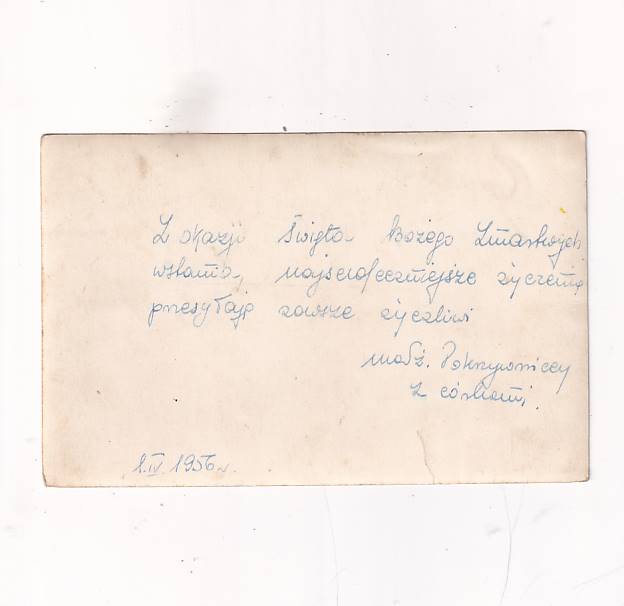 Z okazji Święta Bożego Zmartwych
wstania, najserdeczniejsze życzenia
przesyłają zawsze życzliwi
małż. Pokrzywniccy
z córkami.
1.IV 1956 r.